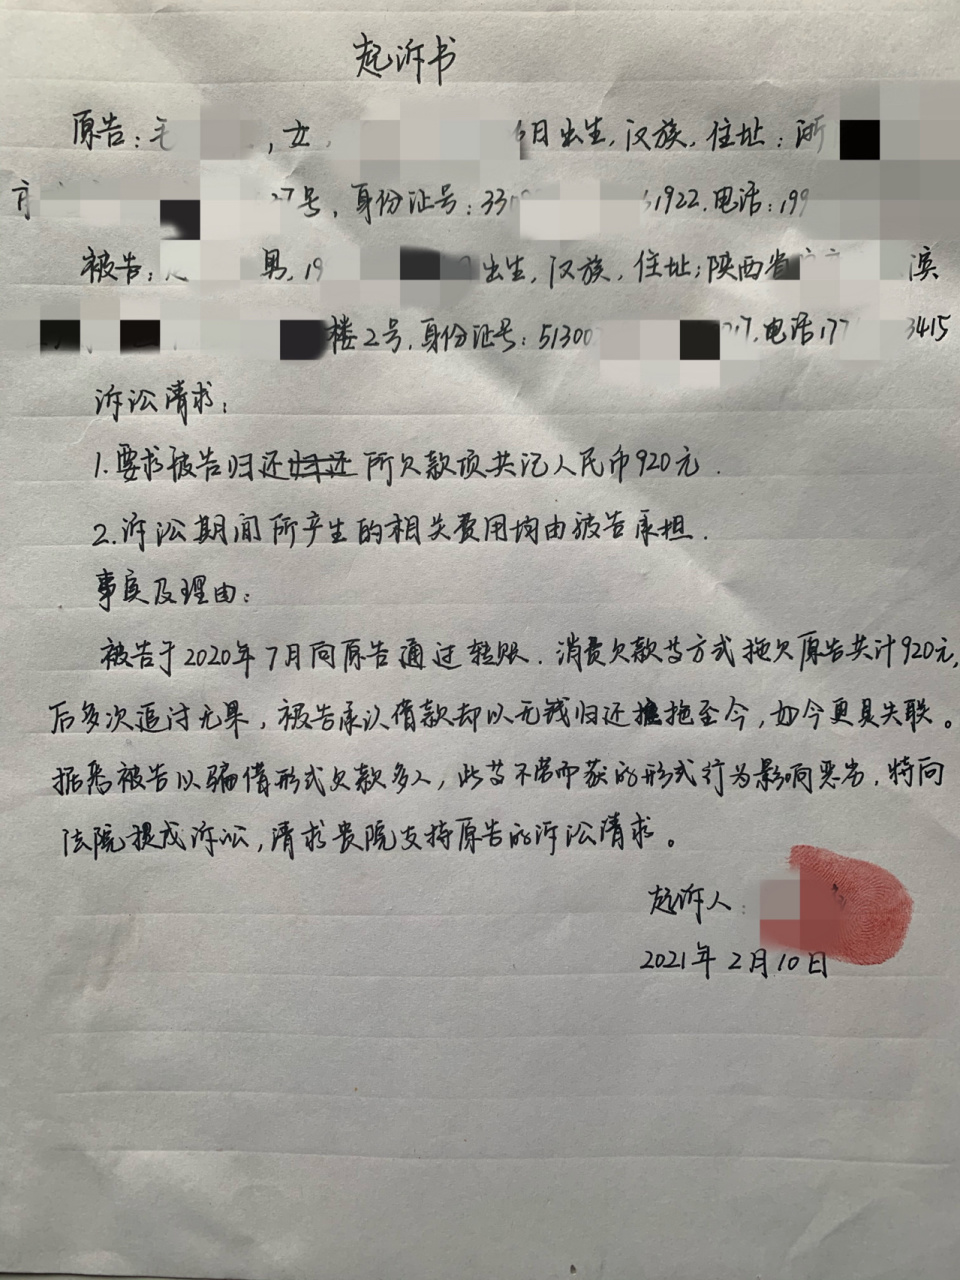 起诉书
原告:毛 ,女, 6日出生,汉族,住址:浙
市 27号,身份证号:330 1922.电话:199
被告: 男,19 出生,汉族,住址;陕西省 滨
楼2号,身份证号:51300 17,电话177 3415
诉讼请求:
1.要求被告归还归还所欠款项共记人民币920元.
2.诉讼期间所产生的相关费用均由被告承担.
事实及理由:
被告于2020年7月向原告通过转账.消费欠款等方式拖欠原告共计920元,
后多次追讨无果,被告承认借款却以无钱归还拖至今,如今更具失联。
据悉被告以骗借形式欠款多人,此等不劳而获的形式行为影响恶劣.特向
法院提成诉讼,请求贵院支持原告的诉讼请求。
起诉人:
2021年2月10日